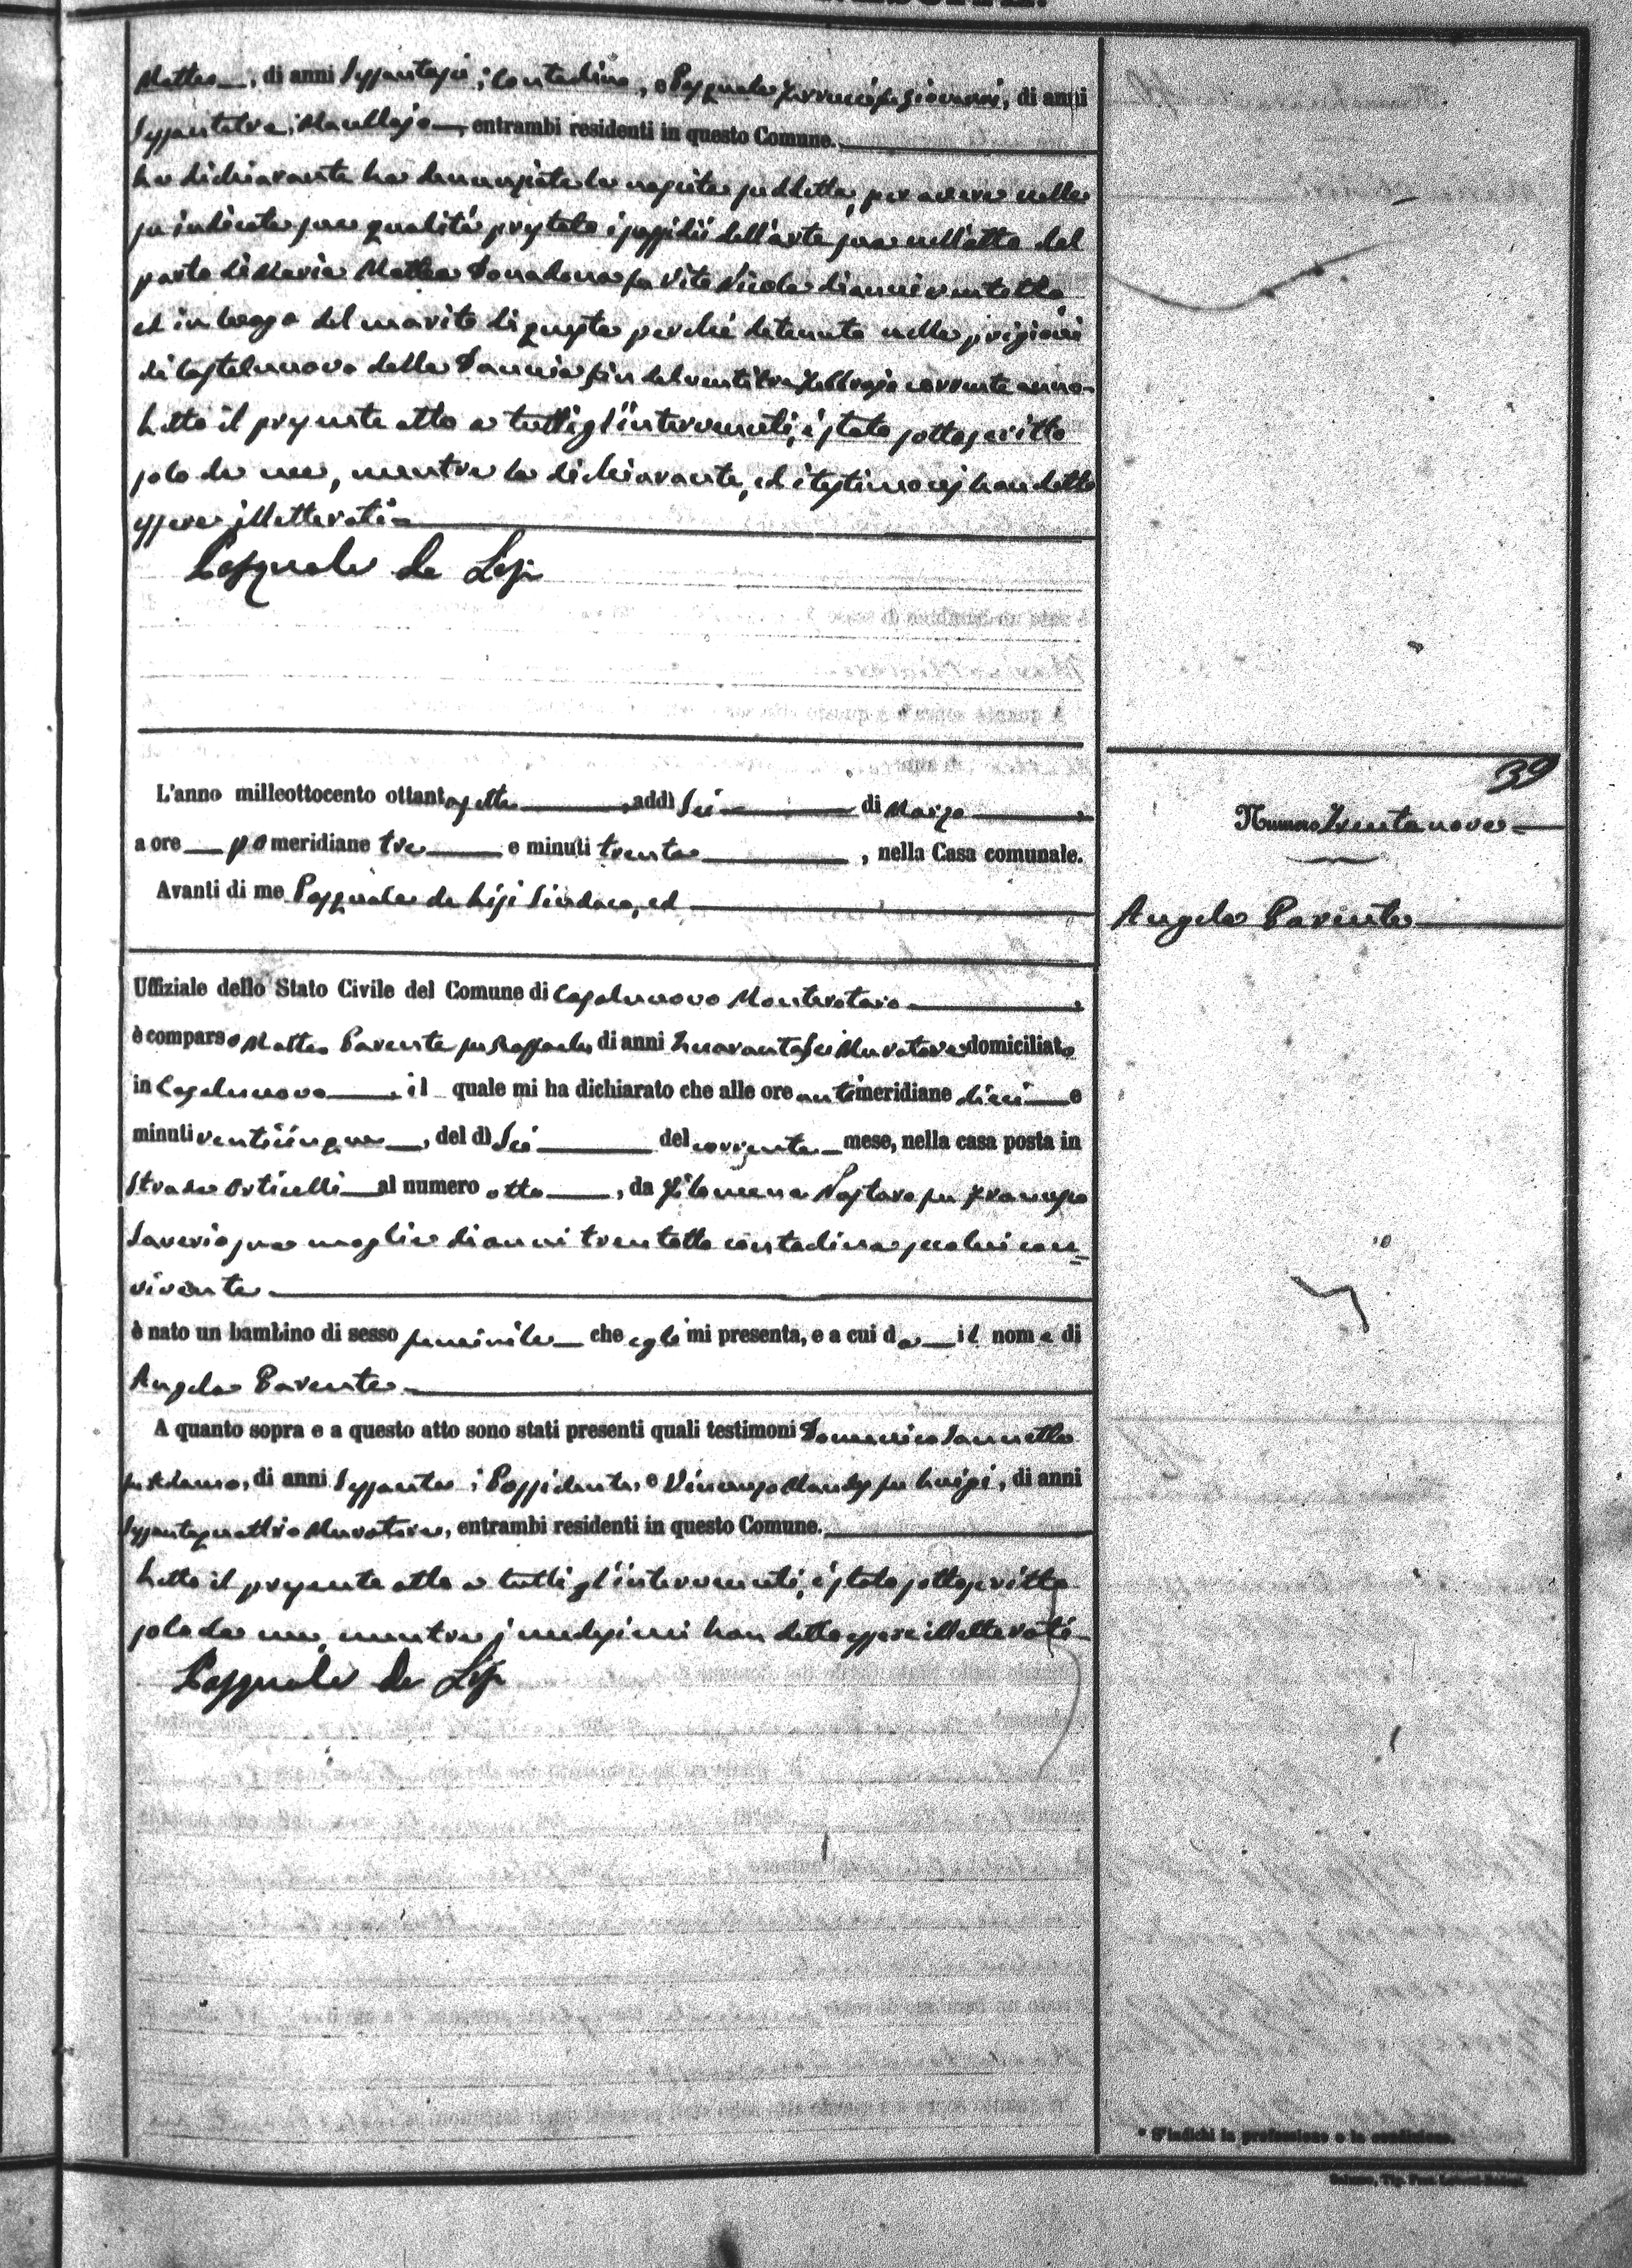 Matteo, di anni Sessantasei, Contadino, e Pasquale Ferrucci fu Giovanni, di anni
Sessantatre, Macellajo, entrambi residenti in questo Comune.
La dichiarante ha denunziato la nascita suddetta, per avere nella
su indicata sua qualità prestato i sussidii dell'arte sua nell'atto del
parto di Maria Mattea Donadona fu Vito Nicola di anni ventotto
ed in luogo del marito di questa perchè detenuto nelle prigioni
di Castelnuovo della Daunia fin del ventitre Febbrajo corrente anno.
Letto il presente atto a tutti gl'intervenuti, è stato sottoscritto
solo da me, mentre la dichiarante, ed i testimonj han detto
essere illetterati.
Pasquale de Lisi
39
L'anno milleottocento ottantasette, addì Sei di Marzo,
a ore pomeridiane tre e minuti trenta, nella Casa comunale.
Numero Trentanove
Avanti di me Pasquale de Lisi Sindaco, ed
Angela Parente
Uffiziale dello Stato Civile del Comune di Casalnuovo Monterotaro,
è comparso Matteo Parente fu Raffaele, di anni Quarantasei Muratore domiciliato
in Casalnuovo, il quale mi ha dichiarato che alle ore antimeridiane dieci e
minuti venticinque, del dì Sei del corrente mese, nella casa posta in
Strada Orticelli al numero otto, da Filomena Nastaro fu Francesco
Saverio sua moglie di anni trentotto contadina seco lui con-
vivente
è nato un bambino di sesso feminile che egli mi presenta, e a cui da il nome di
Angela Parente
A quanto sopra e a questo atto sono stati presenti quali testimoni Domenico Iannello
fu Adamo, di anni Sessanta, Possidente, e Vincenzo Mandes fu Luigi, di anni
Sessantaquattro Muratore, entrambi residenti in questo Comune.
Letto il presente atto a tutti gl'intervenuti, è stato sottoscritto
solo da me, mentre i medesimi han detto essere illetterati.
Pasquale de Lisi
* S'indichi la professione o la condizione.